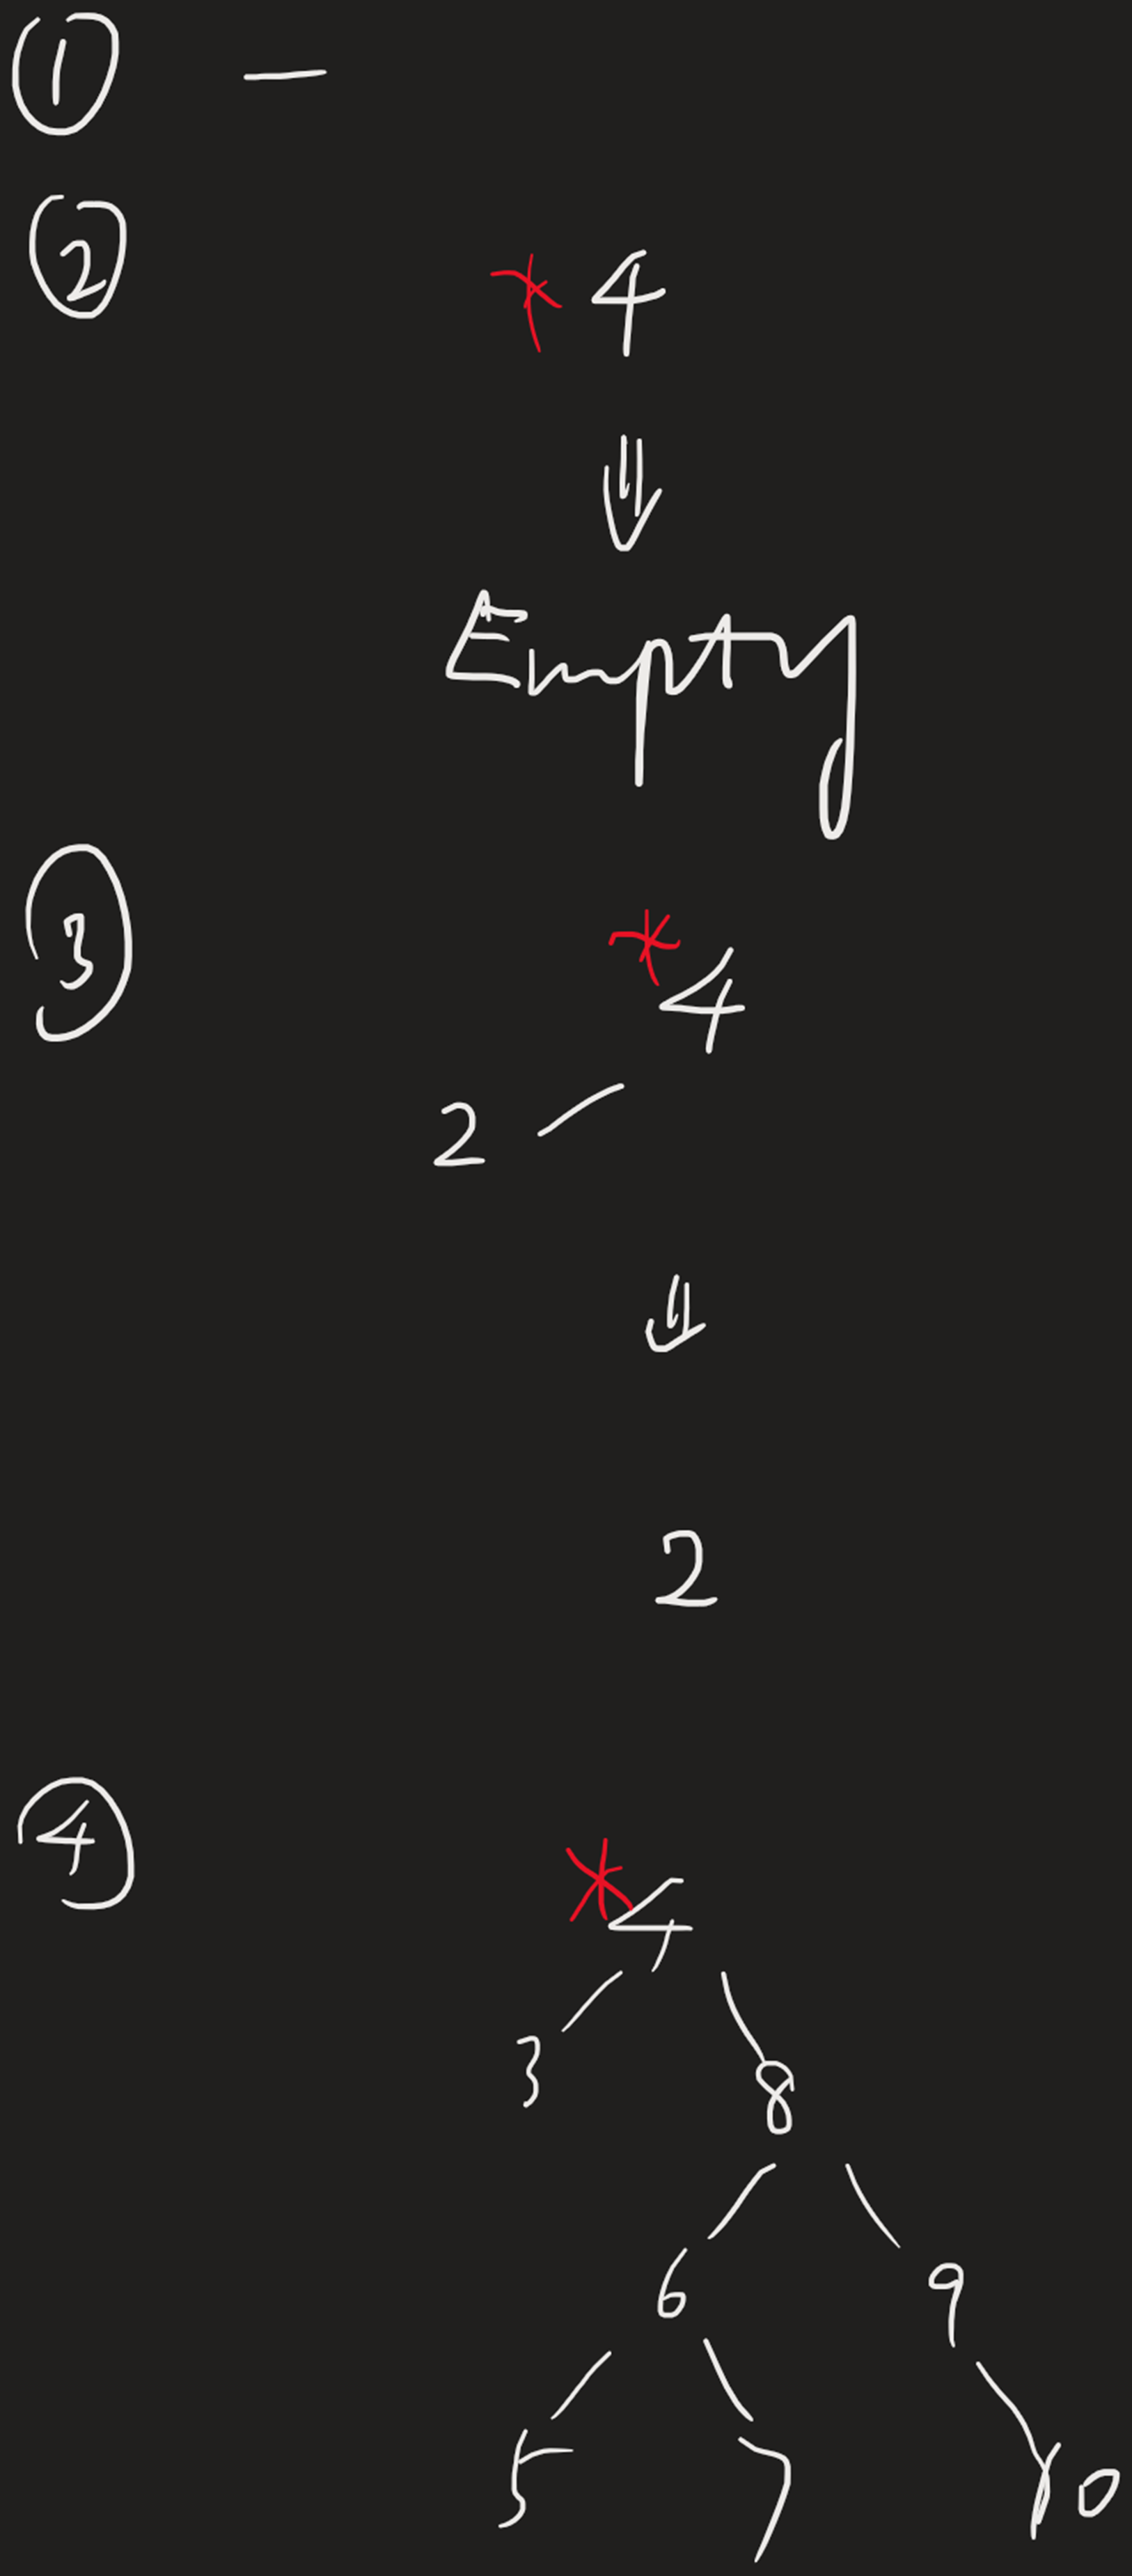 ① —
②
* 4
⇓
Empty
③
* 4
2
⇓
2
④
* 4
3 8
6 9
5 7 10